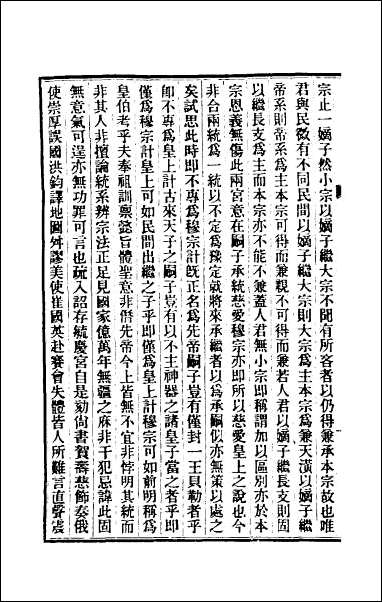 宗止一嫡子然小宗以嫡子繼大宗不聞有所吝者以仍得兼承本宗故也唯
君與民微有不同民間以嫡子繼大宗則大宗爲主本宗爲兼天潢以嫡子繼
帝系則帝系爲主本宗可得而兼親不可得而兼若人君以嫡子繼長支則固
以繼長支爲主而本宗亦不能不兼蓋人君無小宗即稱謂加以區別亦於本
宗恩義無傷此兩宮意在嗣子承統慈愛穆宗亦即所以慈愛皇上之說也今
非合兩統爲一統以不定爲豫定就將來承繼者以爲承嗣似亦無策以處之
矣試思此時即不專爲穆宗計既正名爲先帝嗣子豈有僅封一王貝勒者乎
卽不專爲皇上計古來天子之嗣子豈有以不主神器之諸皇子當之者乎即
僅爲穆宗計皇上可如民間出繼之子乎即僅爲皇上計穆宗可如前明稱爲
皇伯考乎夫奉祖訓稟懿旨體聖意非僭先帝今上皆無不宜非悖明其統而
非其人非擅論統系辨宗法正足見國家億萬年無疆之庥非干犯忌諱此固
無意氣可逞亦無功罪可言也疏入詔存毓慶宮自是劾尚書賀壽慈飾奏俄
使崇厚誤國洪鈞譯地圖舛謬美使崔國英赴賽會失體皆人所難言直聲震